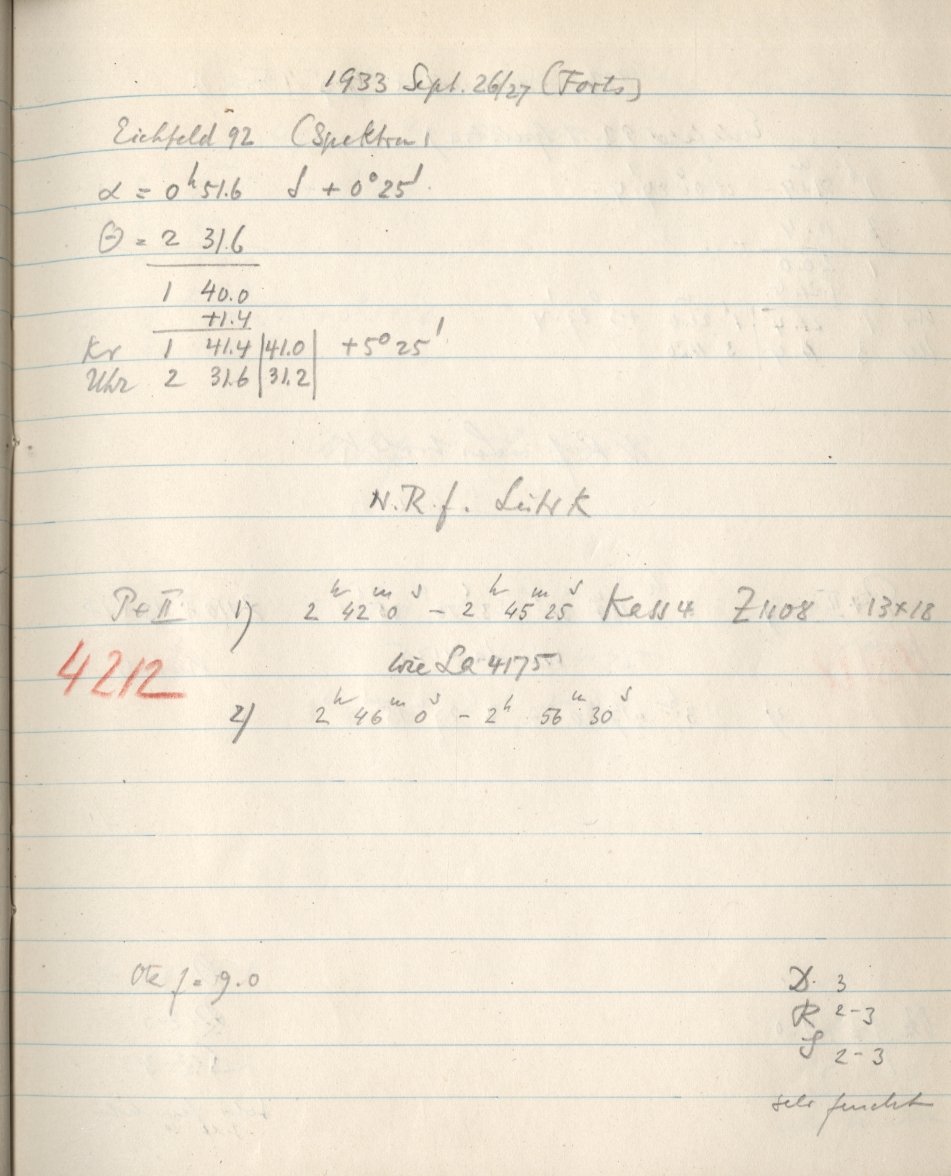 1933 Sept. 26/27 (Forts)
Eichfeld 92 (Spektrum)
α = 0ʰ 51.6 δ + 0° 25'
Θ = 2 31.6
1 40.0
+1.4
Kr 1 41.4 | 41.0 | + 5° 25'
Uhr 2 31.6 | 31.2 |
N.R.f. Leitrk
Pe II 1) 2ʰ 42ᵐ 0ˢ – 2ʰ 45ᵐ 25ˢ Kass 4 Z 1108 13×18
4212
wie La 4175
2) 2ʰ 46ᵐ 0ˢ – 2ʰ 56ᵐ 30ˢ
Ok f = 9.0
D. 3
R 2-3
S 2-3
sehr feucht